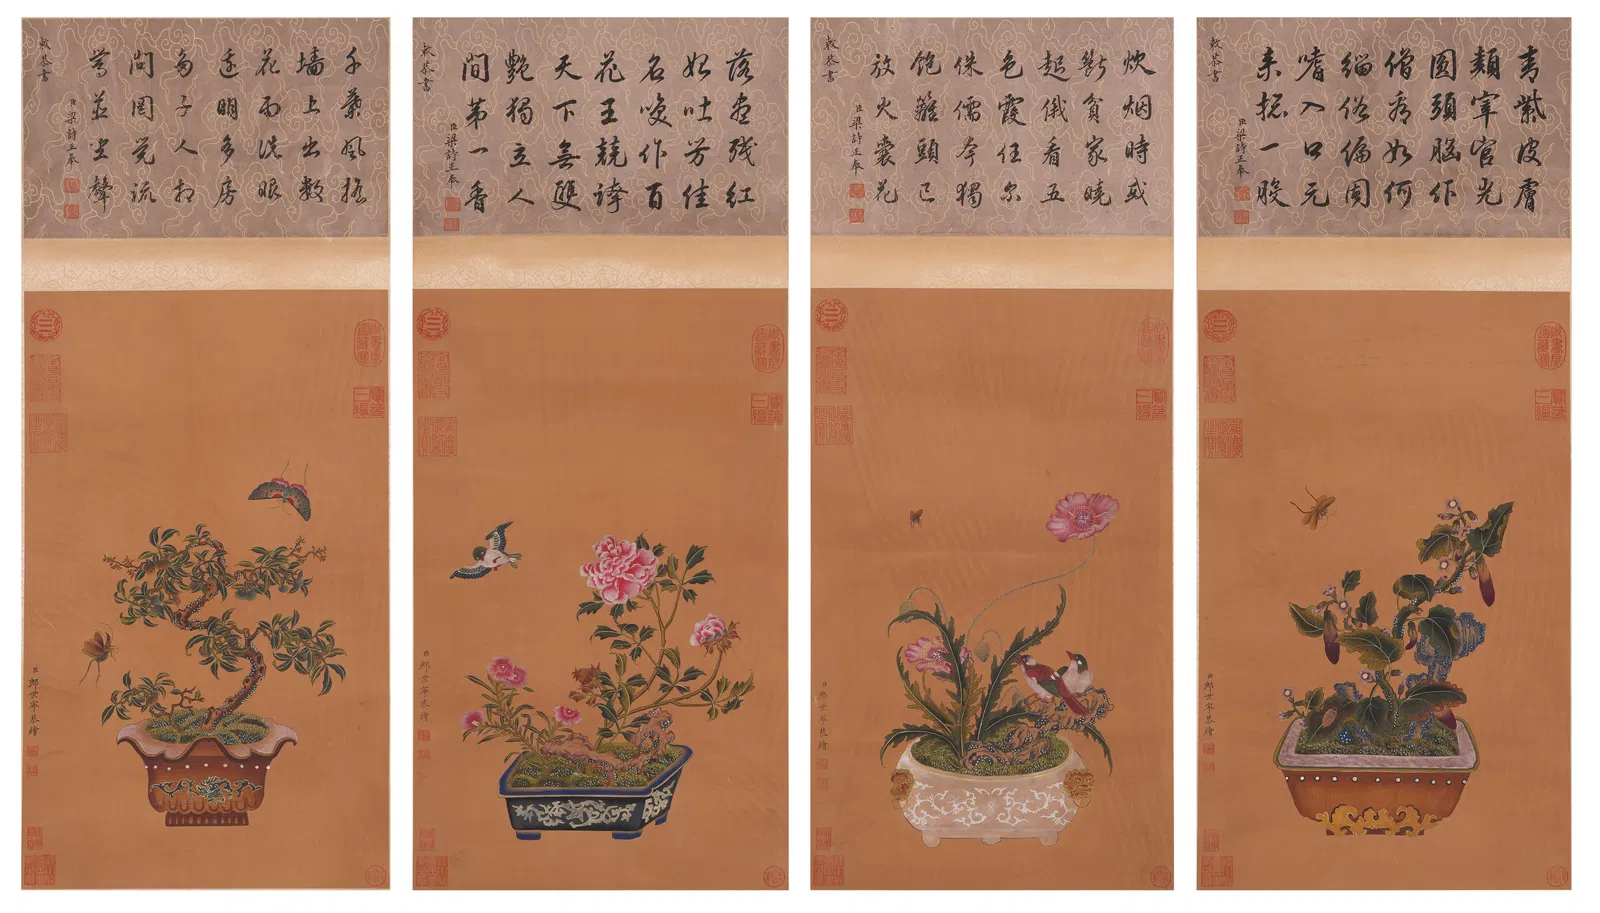 千葉風搖
墻上出數
花雨洗眼
邊明多房
多子人相
尚罔覺流
鶯並坐聲
臣梁詩正奉
敕恭書
臣郎世寧恭繪
落盡殘紅
始吐芳佳
名喚作百
花王競誇
天下無雙
艷獨立人
間第一香
臣梁詩正奉
敕恭書
臣郎世寧恭繪
炊烟時或
斷貧家曉
起俄看五
色霞任尔
侏儒本獨
飽雞頭已
放火囊花
臣梁詩正奉
敕恭書
臣郎世寧恭繪
青紫皮膚
類宰官光
圓頭腦作
僧看如何
緇俗偏同
嗜入口元
来揔一般
臣梁詩正奉
敕恭書
臣郎世寧恭繪